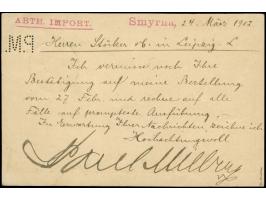 ABTH. IMPORT. Smyrna, 24 März 1903
P.M.
Herren Stüker & C. in Leipzig. L
Ich vermisse noch Ihre
Bestätigung auf meine Bestellung
vom 27 Febr. und rechne auf alle
Fälle auf prompteste Ausführung.
In Erwartung Ihrer Nachrichten, zeichne ich
Hochachtungsvoll